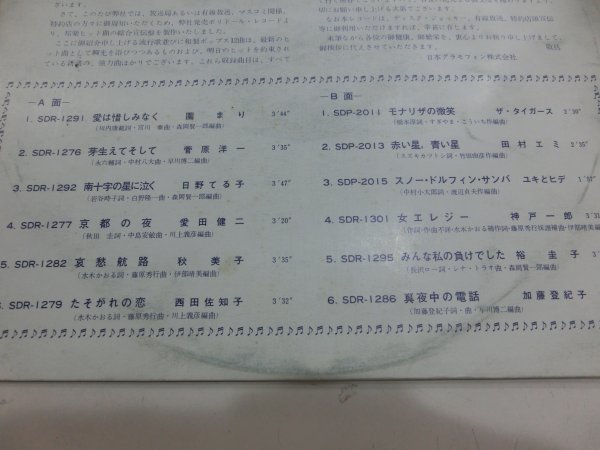 ざいます。
さて、このたび弊社では、放送局あるいは有線放送、マスコミ関係、
特約店の方々に御周知いただくため、弊社発売ポリドール・レコードよ
り、邦楽ヒット曲の綜合宣伝盤を製作いたしました。
ここに御紹介申し上げる流行歌並びに和製ポップス12曲は、最新のヒ
ット曲として脚光を浴びつつあるものおよび、明日のヒットを約束され
ている
強力曲ばかりでございます。これら収録曲目は、すべて
A面
1. SDR-1291 愛は惜しみなく 園まり 3'44"
2. SDR-1276 芽生えてそして 菅原洋一 3'35"
(永六輔詞・中村八大曲・早川博二編曲)
3. SDR-1292 南十字の星に泣く 日野てる子 3'47"
(岩谷時子詞・白野隆一曲・森岡賢一郎編曲)
4. SDR-1277 京都の夜 愛田健二 3'20"
(秋田圭詞・中島安敏曲・川上義彦編曲)
5. SDR-1282 哀愁航路 秋美子 3'35"
(水木かおる詞・藤原秀行曲・伊部晴美編曲)
SDR-1279 たそがれの恋 西田佐知子 3'32"
(水木かおる詞・藤原秀行曲・川上義彦編曲)
頃にお願い申し上げる次第でございます。
なお本レコードは、ディスク・ジョッキー、有線放送、特約店頭宣伝
等に御利用いただけますれば、幸甚に存じます。
末筆ながら各位の御健康、御繁栄を、衷心よりお祈り申し上げまし
御挨拶に代えさせて頂きます。 敬具
日本グラモフォン株式会社
B面
1. SDP-2011 モナリザの微笑 ザ・タイガース
(橋本淳詞・すぎやま・こういち作編曲)
2. SDP-2013 赤い星,青い星 田村エミ
(スズキカツトシ詞・竹田由彦作編曲)
3. SDP-2015 スノー・ドルフィン・サンバ ユキとヒデ
(中村小太郎詞・渡辺貞夫作編曲)
4. SDR-1301 女エレジー 神戸一郎
(作詞・作曲不詳・水木かおる補作・藤原秀行採譜補曲・伊部晴美編
5. SDR-1295 みんな私の負けでした 裕圭子
(長沢ロー詞・シナ・トラオ曲・森岡賢一郎編曲)
6. SDR-1286 真夜中の電話 加藤登紀子
(加藤登紀子詞・曲・早川博二編曲)